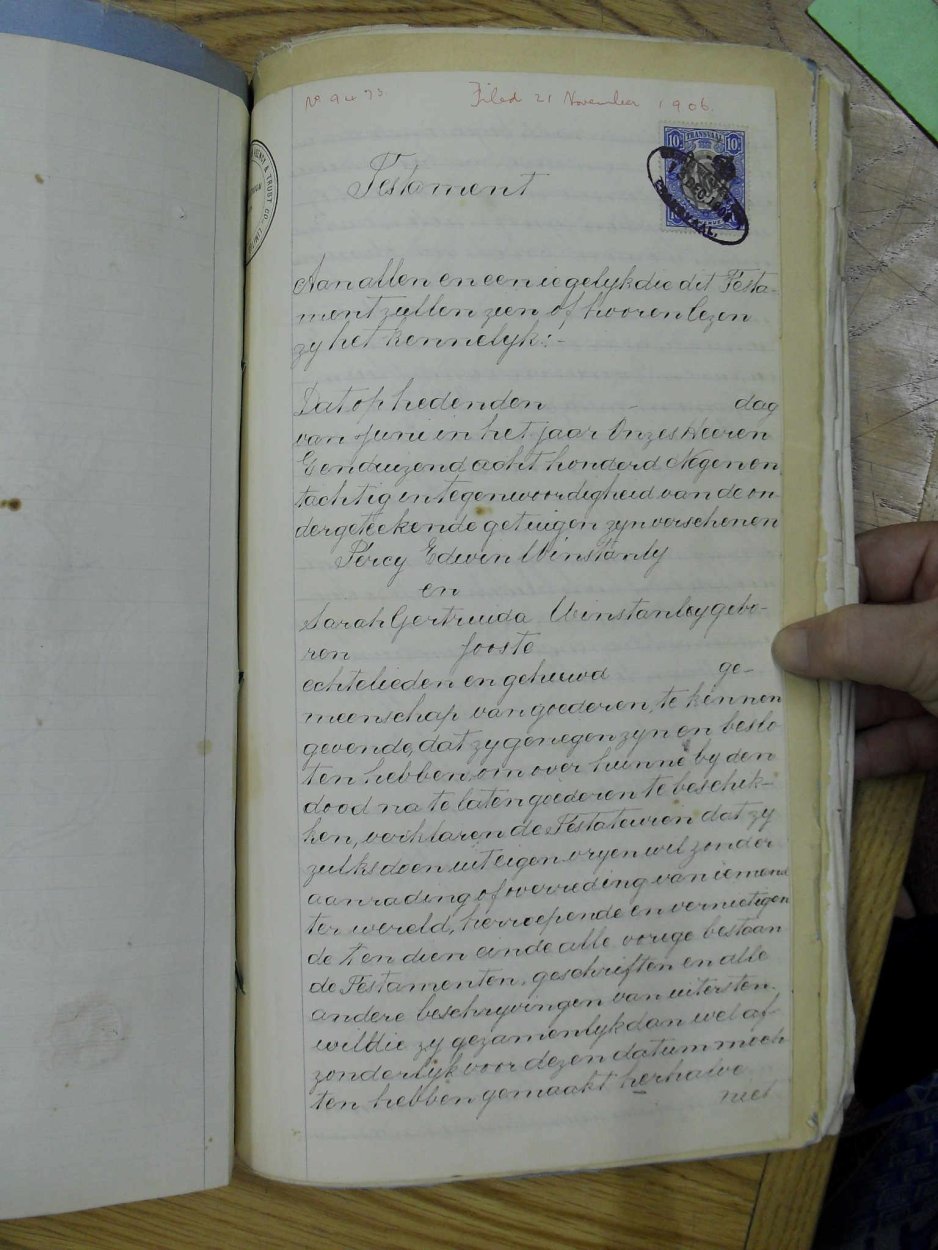 No 9475. Filed 21 November 1906.
& TRUST CO. LIMITED
10/ TRANSVAAL 10/
TRANSVAAL.
Testament
Aan allen en een iegelyk die dit Testa-
ment zullen zien of hooren lezen
zy het kennelyk:-
Dat op heden den - dag
van Juni in het jaar Onzes Heeren
Eenduizend acht honderd Negen en
tachtig in tegenwoordigheid van de on-
dergeteekende getuigen zyn verschenen
Percy Edwin Winstanly
en
Sarah Gertruida Winstanley gebo-
ren Joste
echtelieden en gehuwd ge-
meenschap van goederen, te kennen
gevende, dat zy genegen zyn en beslo
ten hebben, om over hunne by den
dood na te laten goederen te beschik-
ken, verklaren de Testateuren dat zy
zulks doen uit eigen vryen wil zonder
aanrading of overreding van iemand
ter wereld, herroepende en vernietigen
de ten dien einde alle vorige bestaan
de Testamenten, geschriften en alle
andere beschryvingen van uitersten
wil die zy gezamenlyk dan wel af-
zonderlyk voor dezen datum moch
ten hebben gemaakt herhalve
niet